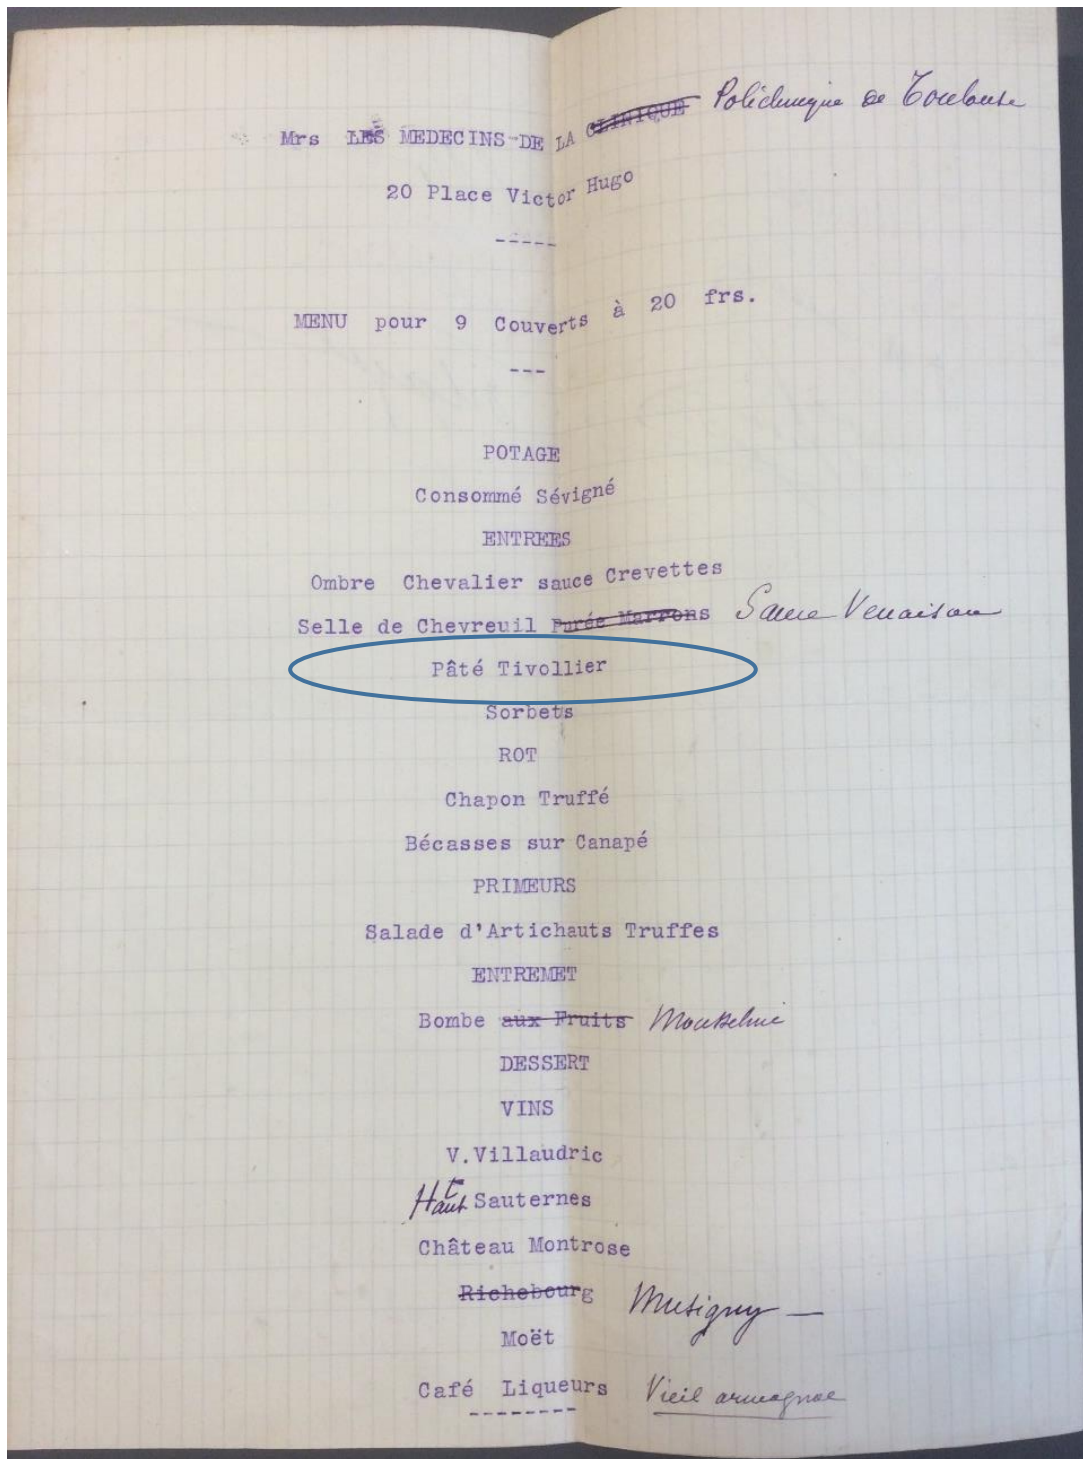 Mrs LES MEDECINS-DE LA CLINIQUE Policlinique de Toulouse
20 Place Victor Hugo
-----
MENU pour 9 Couverts à 20 frs.
---
POTAGE
Consommé Sévigné
ENTREES
Ombre Chevalier sauce Crevettes
Selle de Chevreuil Purée Marrons Sauce Venaison
Pâté Tivollier
Sorbets
ROT
Chapon Truffé
Bécasses sur Canapé
PRIMEURS
Salade d'Artichauts Truffes
ENTREMET
Bombe aux Fruits Mousseline
DESSERT
VINS
V.Villaudric
Haut Sauternes
Château Montrose
Richebourg Musigny —
Moët
Café Liqueurs Vieil armagnac
--------